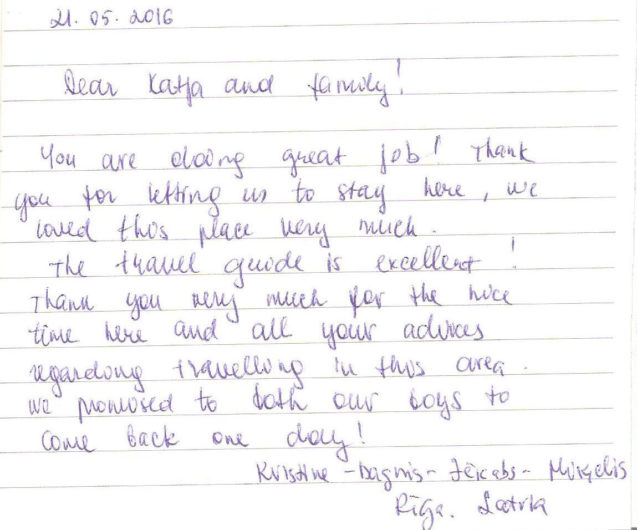 21. 05. 2016
Dear Katja and family!
You are doing great job! Thank
you for letting us to stay here, we
loved this place very much.
The travel guide is excellent!
Thank you very much for the nice
time here and all your advices
regarding travelling in this area.
We promised to both our boys to
come back one day!
Kristine - Dagnis - Jēkabs - Miķelis
Rīga. Latvia